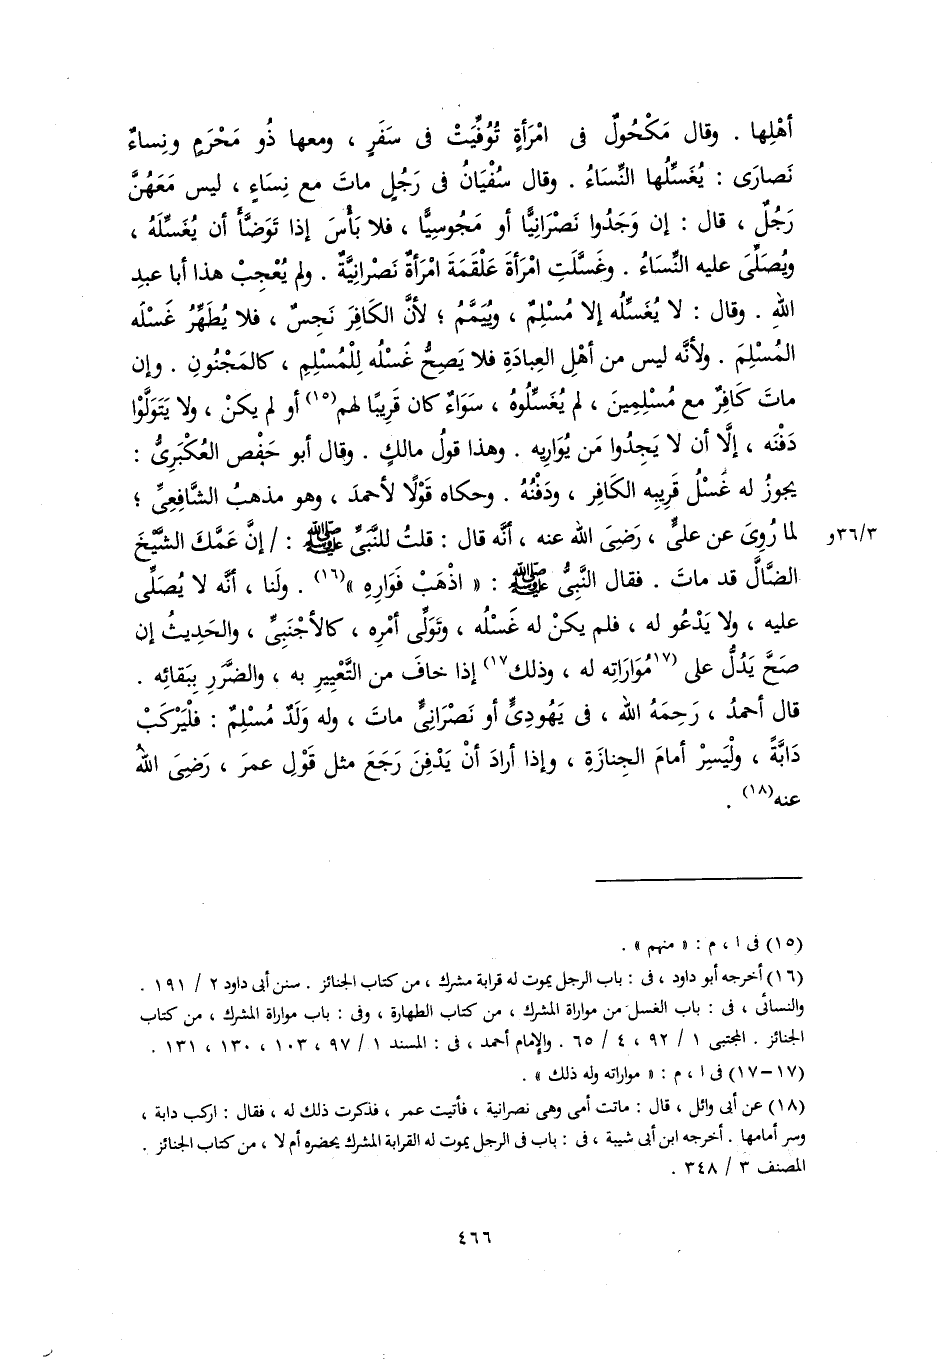 أهْلِها . وقال مَكْحُولٌ فى امْرَأةٍ تُوُفِّيَتْ فى سَفَرٍ ، ومعها ذُو مَحْرَمٍ ونِساءٌ
نَصارَى : يُغَسِّلُها النِّسَاءُ . وقال سُفْيَانُ فى رَجُلٍ ماتَ مع نِسَاءٍ ، ليس مَعَهُنَّ
رَجُلٌ ، قال : إن وَجَدُوا نَصْرَانِيًّا أو مَجُوسِيًّا ، فلا بَأْسَ إذا تَوَضَّأَ أن يُغَسِّلَهُ ،
ويُصَلِّىَ عليه النِّسَاءُ . وغَسَّلَتِ امْرَأةَ عَلْقَمَةَ امْرَأةٌ نَصْرانِيَّةٌ . ولم يُعْجِبْ هذا أبا عبدِ
اللهِ . وقال : لا يُغَسِّلُه إلا مُسْلِمٌ ، ويُيَمَّمُ ؛ لأنَّ الكَافِرَ نَجِسٌ ، فلا يُطَهِّرُ غَسْلُه
المُسْلِمَ . ولأنَّه ليس من أهْلِ العِبادَةِ فلا يَصِحُّ غَسْلُه لِلْمُسْلِمِ ، كالمَجْنُونِ . وإن
ماتَ كَافِرٌ مع مُسْلِمِينَ ، لم يُغَسِّلُوهُ ، سَوَاءٌ كان قَرِيبًا لهم(١٥) أو لم يكنْ ، ولا يَتَوَلَّوْا
دَفْنَه ، إلَّا أن لا يَجِدُوا مَن يُوَارِيه . وهذا قولُ مالكٍ . وقال أبو حَفْص العُكْبَرِىُّ :
يجوزُ له غَسْلُ قَرِيبِه الكَافِرِ ، ودَفْنُهُ . وحكاه قَوْلًا لأحمدَ ، وهو مذهبُ الشَّافِعِىِّ ؛
لما رُوِىَ عن علىٍّ ، رَضِىَ الله عنه ، أنَّه قال : قلتُ للنَّبِىِّ ﷺ : / إنَّ عَمَّكَ الشَّيْخَ
٣٦/٣و
الضَّالَّ قد ماتَ . فقال النَّبِىُّ ﷺ : « اذْهَبْ فَوَارِهِ »(١٦) . ولَنا ، أنَّه لا يُصَلِّى
عليه ، ولا يَدْعُو له ، فلم يكنْ له غَسْلُه ، وتَوَلِّى أمْرِه ، كالأجْنَبِىِّ ، والحَدِيثُ إن
صَحَّ يَدُلُّ على (١٧مُوَارَاتِه له ، وذلك١٧) إذا خافَ من التَّعْيِيرِ به ، والضَّرَرِ بِبَقائِه .
قال أحمدُ ، رَحِمَهُ الله ، فى يَهُودِىٍّ أو نَصْرَانِىٍّ ماتَ ، وله وَلَدٌ مُسْلِمٌ : فلْيَرْكَبْ
دَابَّةً ، ولْيَسِرْ أمامَ الجِنازَةِ ، وإذا أرادَ أنْ يَدْفِنَ رَجَعَ مثل قَوْلِ عمرَ ، رَضِىَ اللهُ
عنه(١٨) .
(١٥) فى ا ، م : « منهم » .
(١٦) أخرجه أبو داود ، فى : باب الرجل يموت له قرابة مشرك ، من كتاب الجنائز . سنن أبى داود ٢ / ١٩١ .
والنسائى ، فى : باب الغسل من مواراة المشرك ، من كتاب الطهارة ، وفى : باب مواراة المشرك ، من كتاب
الجنائز . المجتبى ١ / ٩٢ ، ٤ / ٦٥ . والإمام أحمد ، فى : المسند ١ / ٩٧ ، ١٠٣ ، ١٣٠ ، ١٣١ .
(١٧-١٧) فى ا ، م : « مواراته وله ذلك » .
(١٨) عن أبى وائل ، قال : ماتت أمى وهى نصرانية ، فأتيت عمر ، فذكرت ذلك له ، فقال : اركب دابة ،
وسر أمامها . أخرجه ابن أبى شيبة ، فى : باب فى الرجل يموت له القرابة المشرك يحضره أم لا ، من كتاب الجنائز .
المصنف ٣ / ٣٤٨ .
٤٦٦